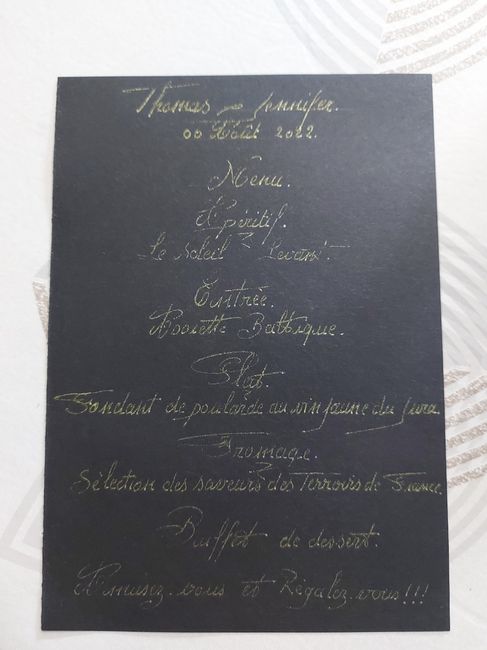 Thomas & Jennifer.
06 Août 2022.
Menu.
Apéritif.
Le Soleil Levant.
Entrée.
Assiette Baltique.
Plat.
Fondant de poularde au vin jaune du Jura.
Fromage.
Sélection des saveurs des Terroirs de France.
Buffet de dessert.
Amusez-vous et Régalez-vous!!!